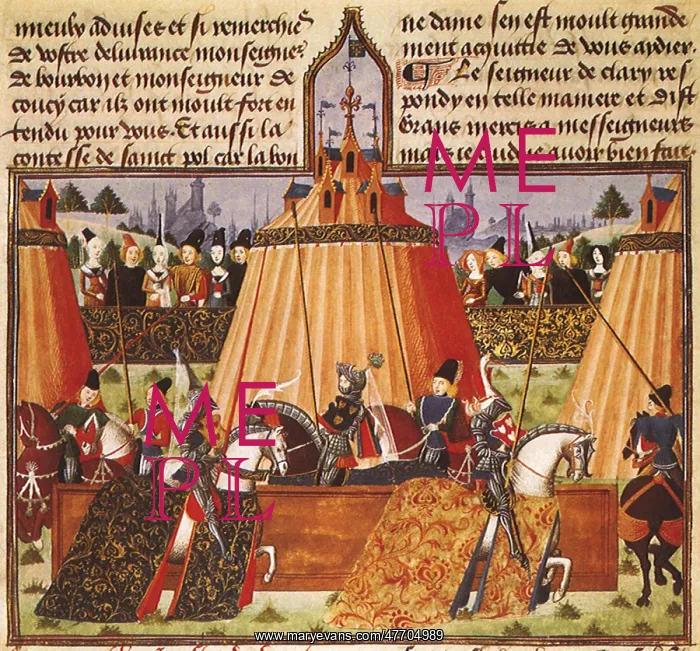 mieulx aduises et si remerchies
de vostre deliurance monseigne
de bourbon et monseigneur de
coucy car ilz ont moult fort en
tendu pour vous. Et aussi la
contesse de sainct pol car la bon
ne dame sen est moult grande
ment acquittie de vous aydier.
Le seigneur de clary res
pondy en telle maniere et dist
Grans mercis a messeigneurs
mais ie auoir bien fait.
ME
PL
ME
PL
www.maryevans.com/47704989